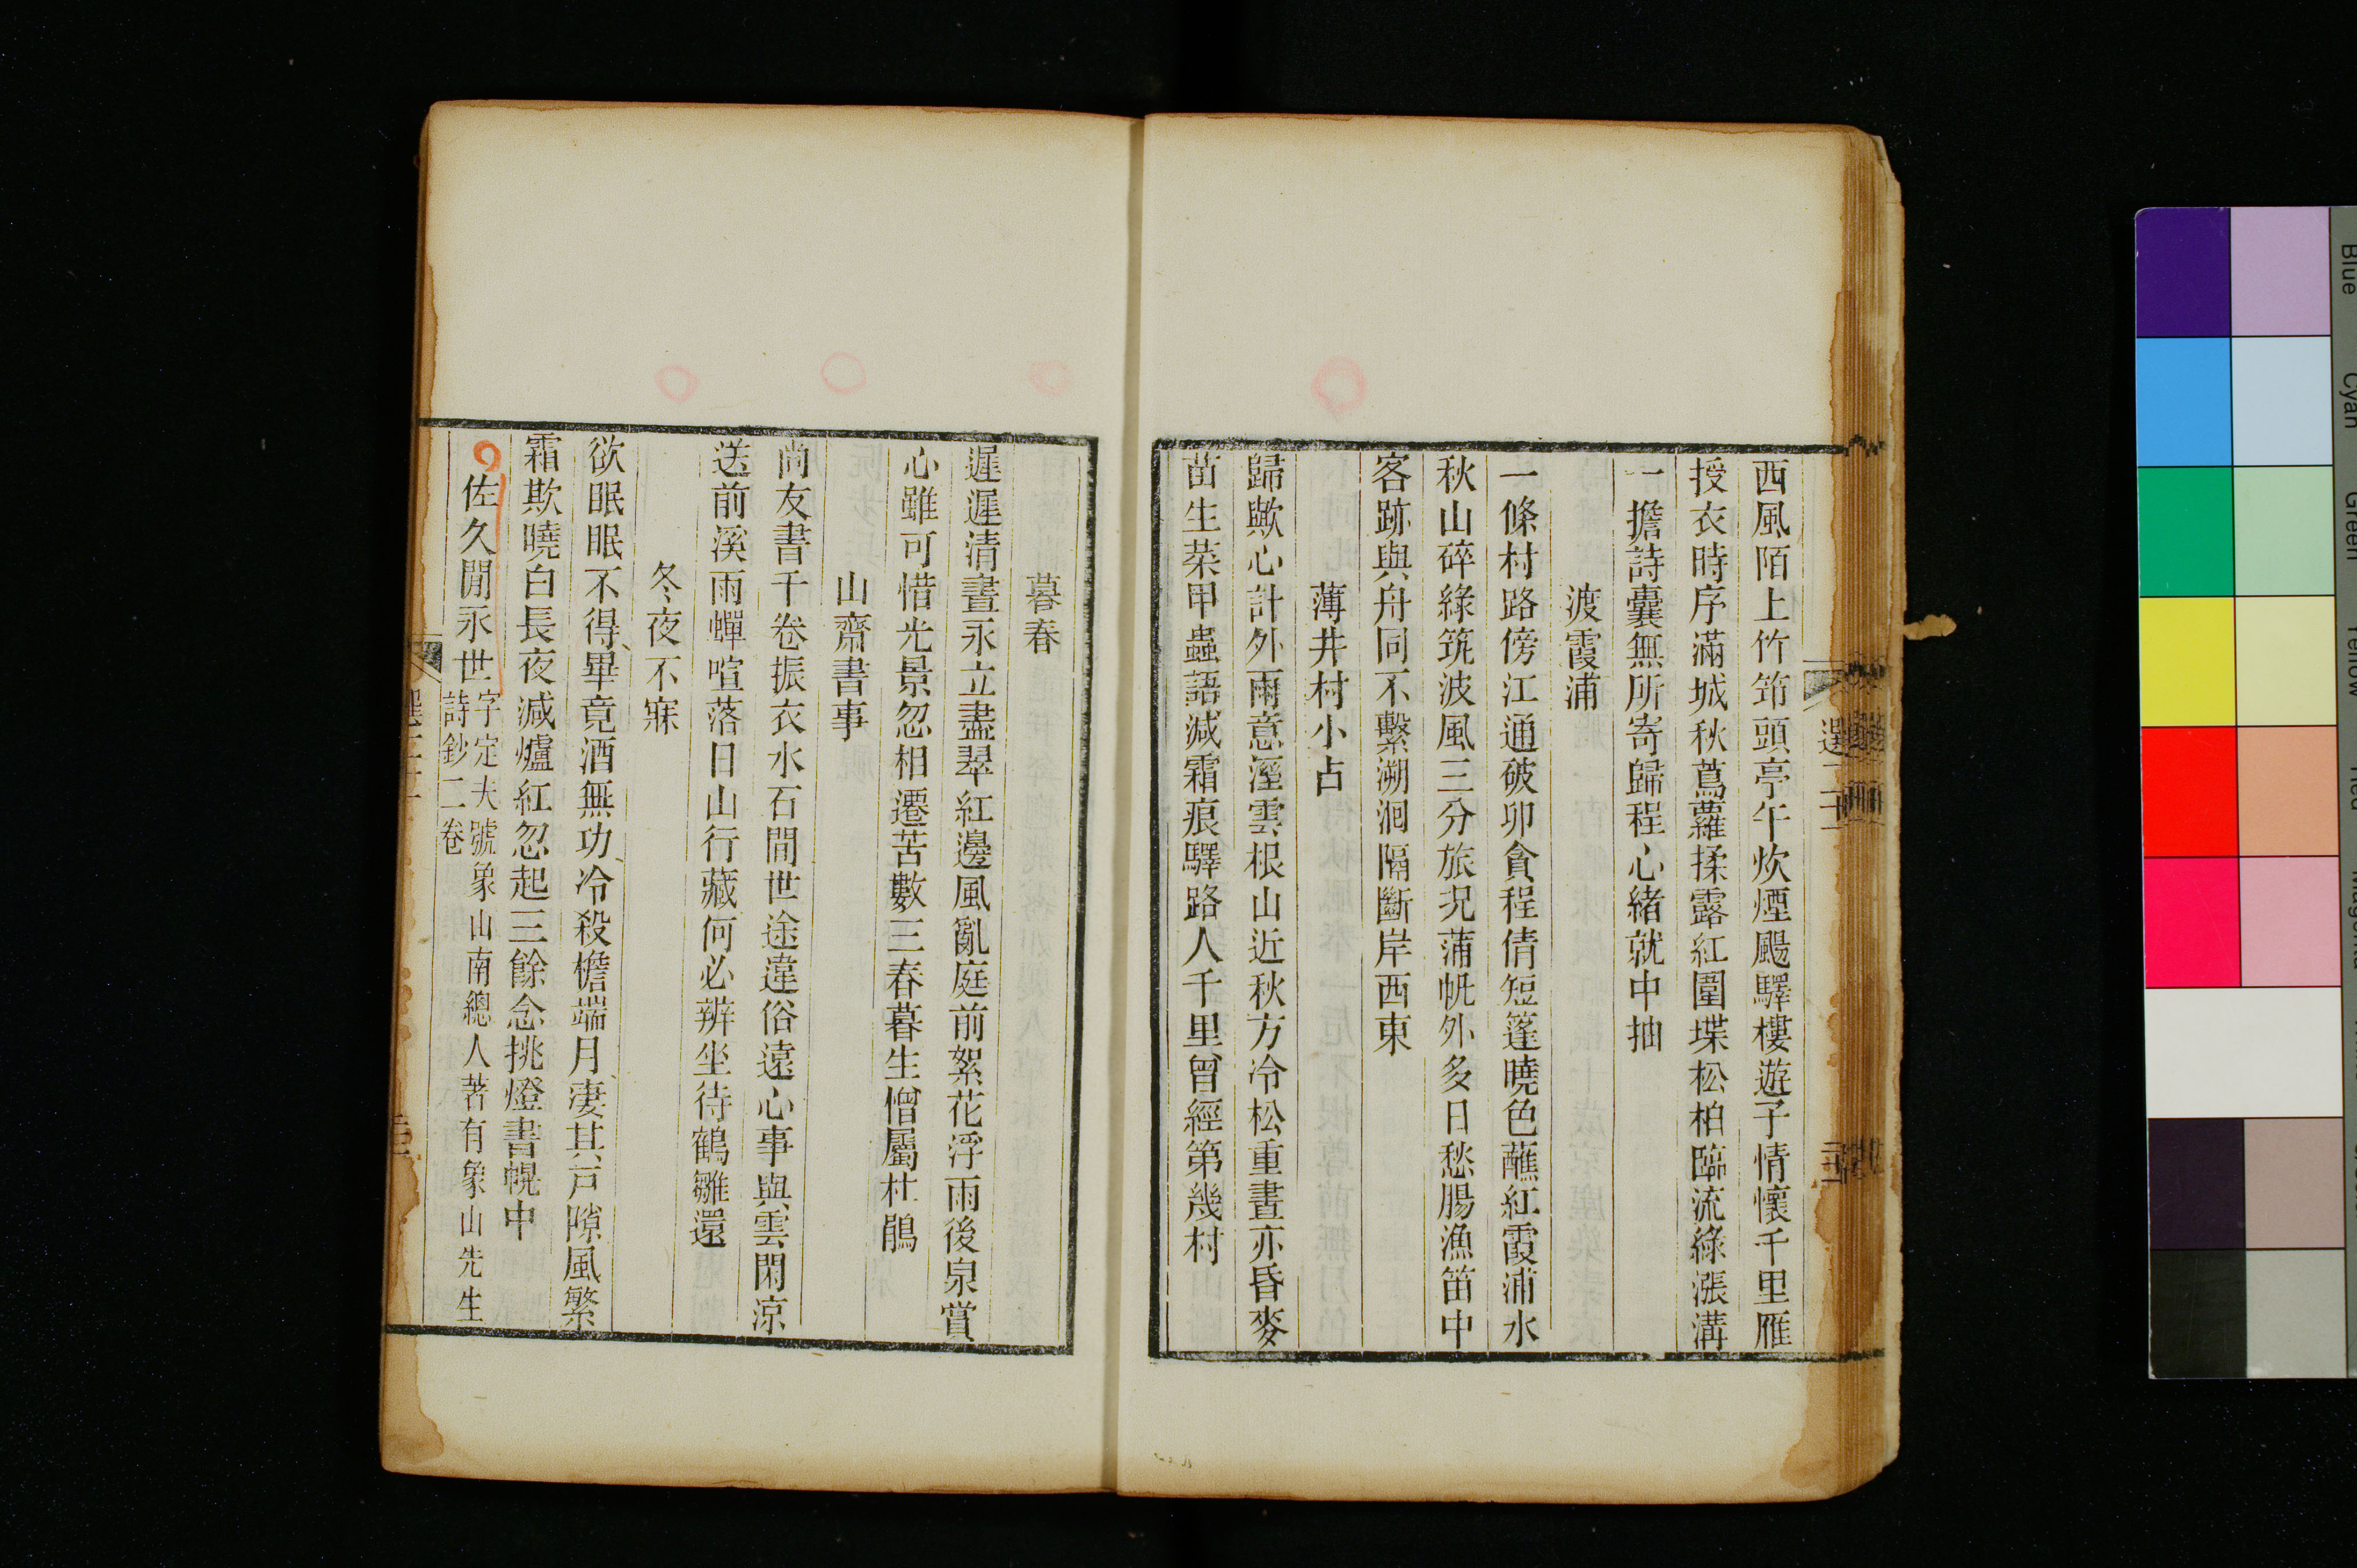 西風陌上竹筇頭亭午炊煙颺驛樓遊子情懷千里雁
授衣時序滿城秋蔦蘿揉露紅圍堞松柏臨流綠漲溝
一擔詩囊無所寄歸程心緒就中抽
渡霞浦
一條村路傍江通破卯貪程倩短篷曉色蘸紅霞浦水
秋山碎綠筑波風三分旅況蒲帆外多日愁腸漁笛中
客跡與舟同不繫溯洄隔斷岸西東
薄井村小占
歸歟心計外雨意溼雲根山近秋方冷松重晝亦昏麥
苗生菜甲蟲語減霜痕驛路人千里曾經第幾村
暮春
遲遲清晝永立盡翠紅邊風亂庭前絮花浮雨後泉賞
心雖可惜光景忽相遷苦數三春暮生憎屬杜鵑
山齋書事
尚友書千卷振衣水石間世途違俗遠心事與雲閑涼
送前溪雨蟬喧落日山行藏何必辨坐待鶴雛還
冬夜不寐
欲眠眠不得畢竟酒無功冷殺檐端月凄其戶隙風繁
霜欺曉白長夜減爐紅忽起三餘念挑燈書幌中
佐久間永世
字定夫號象山南總人著有象山先生
詩鈔二卷
Blue
Cyan
Green
Yellow